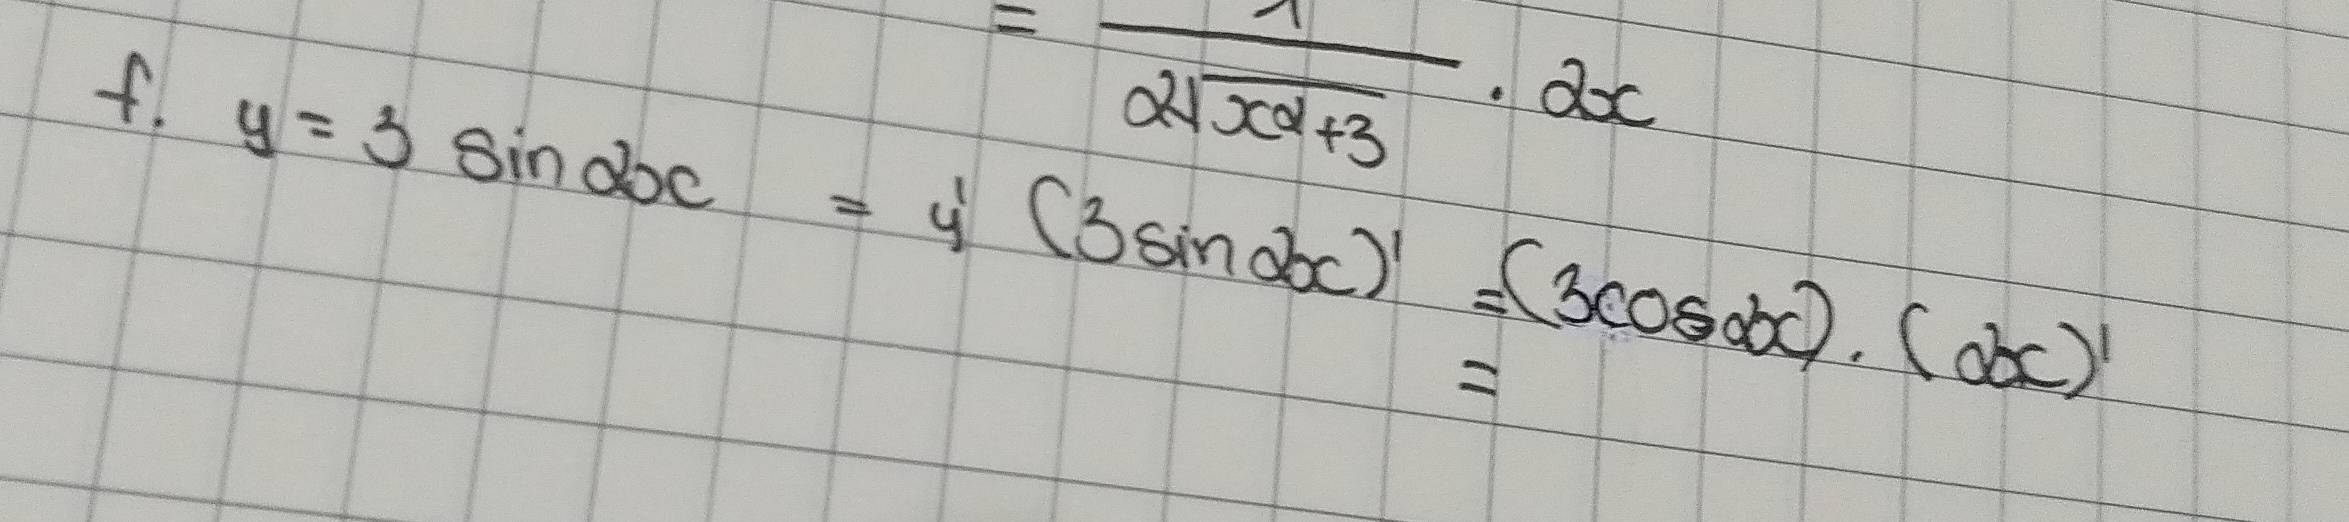 = 1 / 2√x2+3 . 2x
f. y = 3 sin 2x = y' (3 sin 2x)' = (3cos 2x) . (2x)'
=